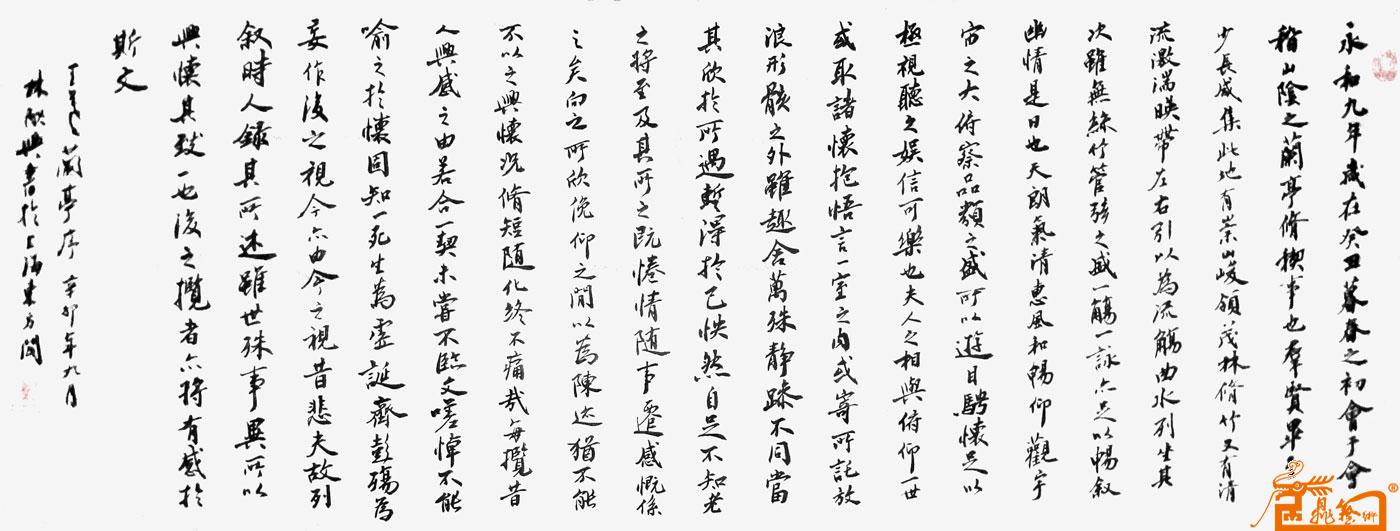 永和九年歲在癸丑暮春之初會于會
稽山陰之蘭亭脩禊事也羣賢畢至
少長咸集此地有崇山峻領茂林脩竹又有清
流激湍暎帶左右引以為流觴曲水列坐其
次雖無絲竹管弦之盛一觴一詠亦足以暢叙
幽情是日也天朗氣清惠風和暢仰觀宇
宙之大俯察品類之盛所以遊目騁懷足以
極視聽之娛信可樂也夫人之相與俯仰一世
或取諸懷抱悟言一室之內或寄所託放
浪形骸之外雖趣舍萬殊静躁不同當
其欣於所遇暫得於己怏然自足不知老
之將至及其所之既惓情随事遷感慨係
之矣向之所欣俛仰之間以為陳迹猶不能
不以之興懷況脩短随化終不痛哉每攬昔
人興感之由若合一契未嘗不臨文嗟悼不能
喻之於懷固知一死生為虛誕齊彭殤為
妄作後之視今亦由今之視昔悲夫故列
叙時人錄其所述雖世殊事異所以
興懷其致一也後之攬者亦將有感於
斯文
蘭亭序辛卯年九月
林興書於上海東方閣